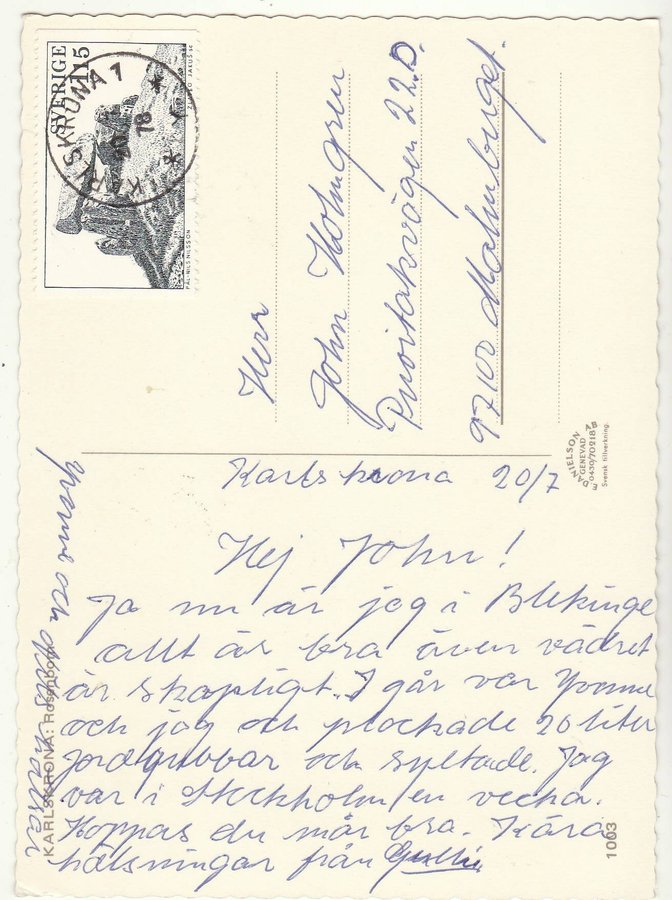 SVERIGE
115
KARLSKRONA 1
78
PÅL-NILS NILSSON
Herr
John Holmgren
Puoitakvägen 22 D.
97100 Malmberget.
DANIELSON
GENEVAD
0430/70218
Svensk tillverkning.
Karlskrona 20/7
Hej John!
Ja nu är jag i Blekinge
allt är bra även vädret
är skapligt. I går var Yvonne
och jag och plockade 20 liter
jordgubbar och syltade. Jag
var i Stockholm en vecka.
Hoppas du mår bra. Kära
hälsningar från Gullie
Yvonne och hälsar
KARLSKRONA: Rosenbom
1003